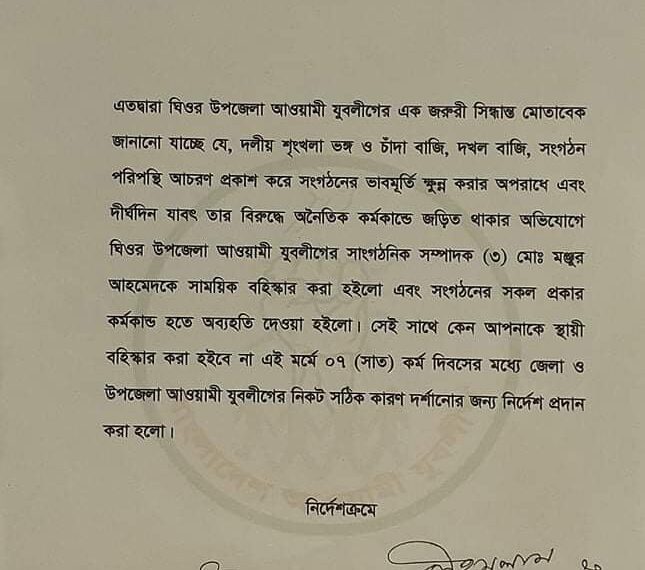 এতদ্বারা ঘিওর উপজেলা আওয়ামী যুবলীগের এক জরুরী সিদ্ধান্ত মোতাবেক
জানানো যাচ্ছে যে, দলীয় শৃংখলা ভঙ্গ ও চাঁদা বাজি, দখল বাজি, সংগঠন
পরিপন্থি আচরণ প্রকাশ করে সংগঠনের ভাবমূর্তি ক্ষুন্ন করার অপরাধে এবং
দীর্ঘদিন যাবৎ তার বিরুদ্ধে অনৈতিক কর্মকান্ডে জড়িত থাকার অভিযোগে
ঘিওর উপজেলা আওয়ামী যুবলীগের সাংগঠনিক সম্পাদক (৩) মোঃ মঞ্জুর
আহমেদকে সাময়িক বহিস্কার করা হইলো এবং সংগঠনের সকল প্রকার
কর্মকান্ড হতে অব্যহতি দেওয়া হইলো। সেই সাথে কেন আপনাকে স্থায়ী
বহিস্কার করা হইবে না এই মর্মে ০৭ (সাত) কর্ম দিবসের মধ্যে জেলা ও
উপজেলা আওয়ামী যুবলীগের নিকট সঠিক কারণ দর্শানোর জন্য নির্দেশ প্রদান
করা হলো।
নির্দেশক্রমে